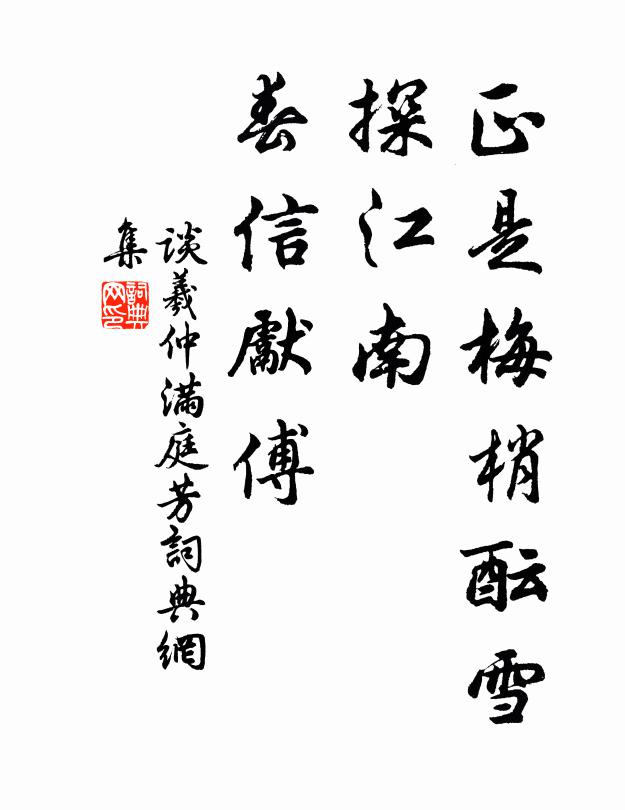 正是梅梢酝雪
探江南
春信献傅
谈羲仲满庭芳词典網
集
詞典网